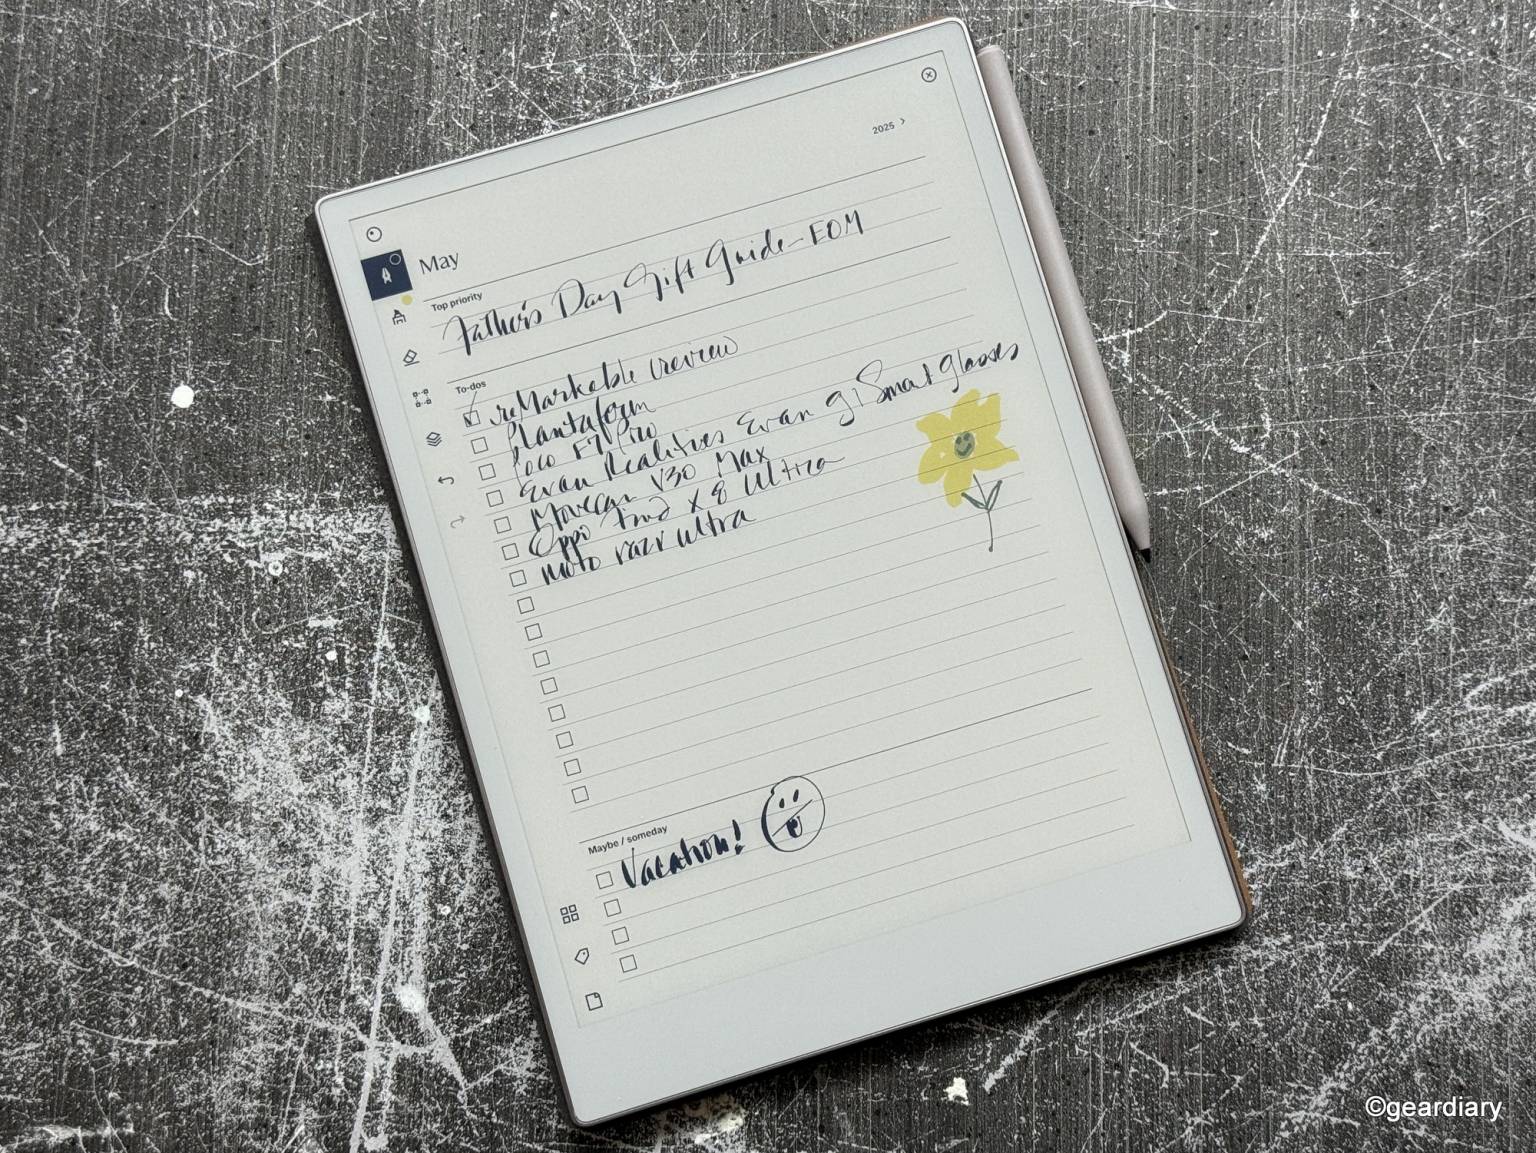 2025 >
May
Top priority
Father's Day Gift Guide - EOM
To-dos
reMarkable review
Plantaform
Poco F7 Pro
Even Realities Even G1 Smart Glasses
Movecan V30 Max
Oppo Find X8 Ultra
moto razr ultra
Maybe / someday
Vacation!
©geardiary